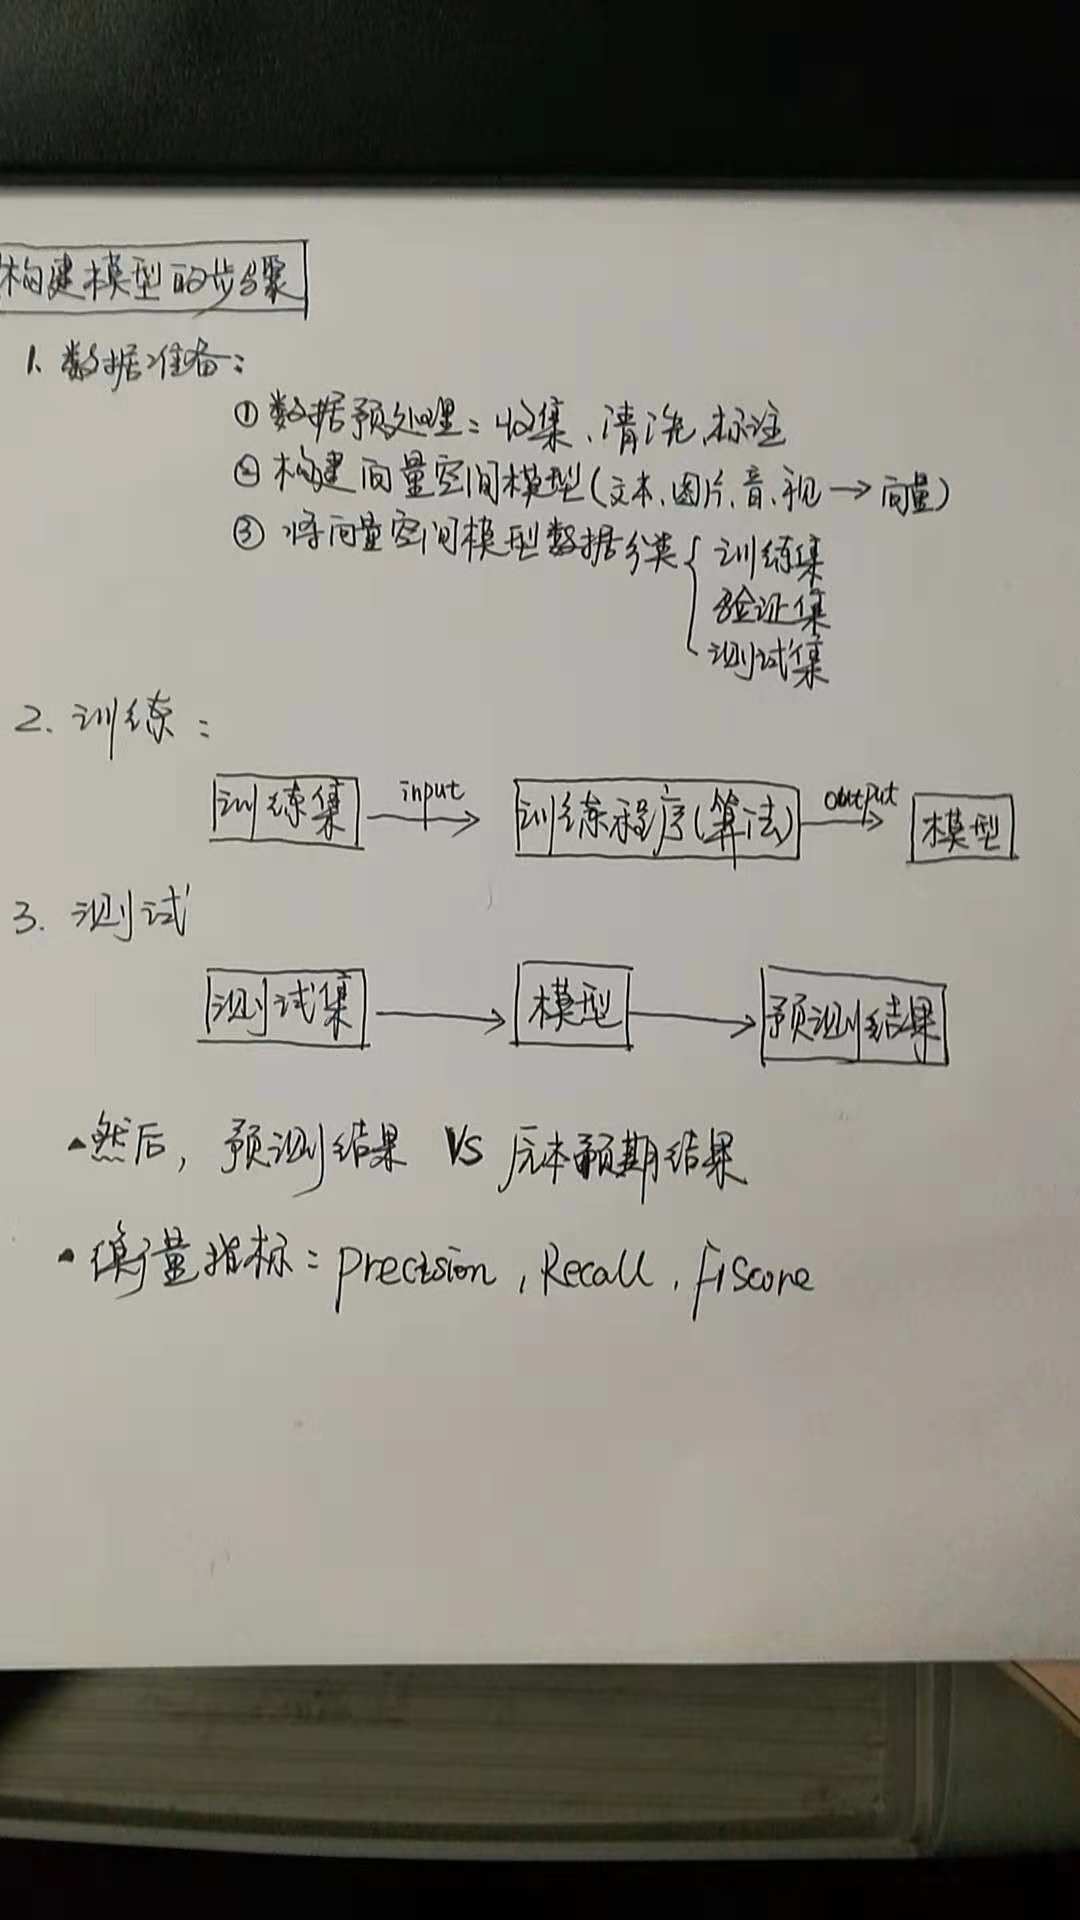 构建模型的步骤
1. 数据准备：
① 数据预处理：收集、清洗、标注
② 构建向量空间模型(文本、图片、音、视→向量)
③ 将向量空间模型数据分类{训练集
验证集
测试集
2. 训练：
训练集 input→ 训练程序(算法) output→ 模型
3. 测试
测试集 → 模型 → 预测结果
然后, 预测结果 VS 原本预期结果
衡量指标：precision, Recall, F1score